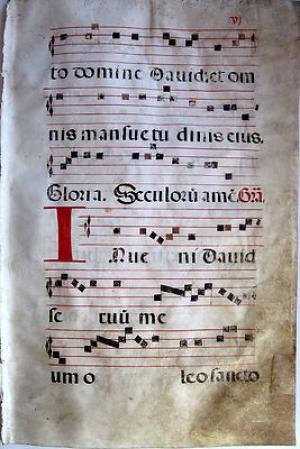 vj
to domine David: et om
nis mansuetudinis eius.
Gloria. Seculorũ amẽ. Gra.
INue ni David
se ruũ me
um o leo sancto